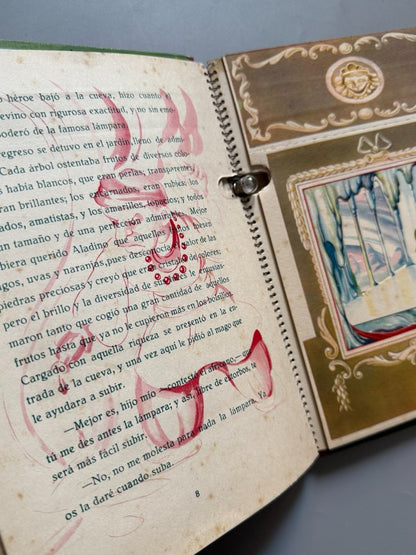 héroe bajó a la cueva, hizo cuanto el
evino con rigurosa exactitud, y no sin emo-
poderó de la famosa lámpara.
regreso se detuvo en el jardín, lleno de admi-
Cada árbol ostentaba frutos de diversos colo-
s había blancos, que eran perlas; los
ran brillantes; los encarnados, eran rubíes; los
ados, amatistas, y los amarillos, topacios, y todos
un tamaño y de una perfección admirable. Mejor
biera querido Aladino que aquellas
igos, uvas y naranjas, pues desconocía el valor de las
piedras preciosas y creyó que eran cristal de colores;
pero el brillo y la diversidad de
maron tanto que cogió una gran cantidad de aquellos
frutos hasta que ya no le cupieron más en los bolsillos.
Cargado con aquella riqueza se presentó en la en-
trada de la cueva, y una vez aquí le pidió al mago que
le ayudara a subir.
—Mejor es, hijo mío —contestó el africano— que
tú me des antes la lámpara; y así, libre de estorbos, te
será más fácil subir.
—No, no me molesta para nada la lámpara. Ya
os la daré cuando suba.
8